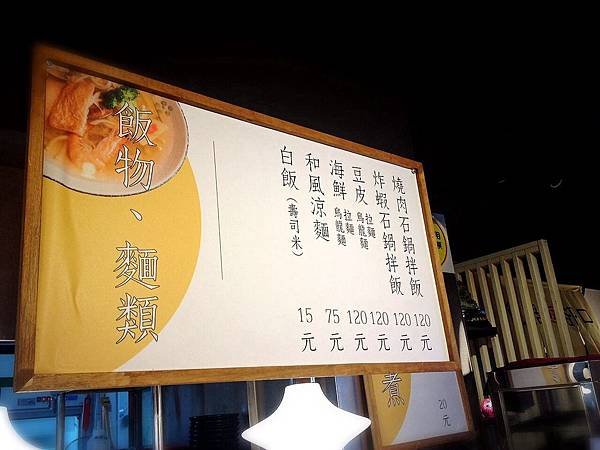 飯物、麵類
燒肉石鍋拌飯 120元
炸蝦石鍋拌飯 120元
豆皮 拉麵 烏龍麵 120元
海鮮 拉麵 烏龍麵 120元
和風涼麵 75元
白飯(壽司米) 15元
煮
20元